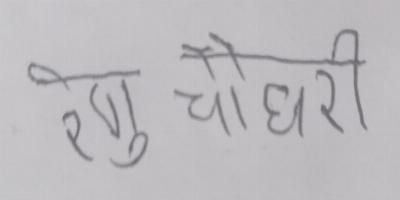 रेणु चौधरी